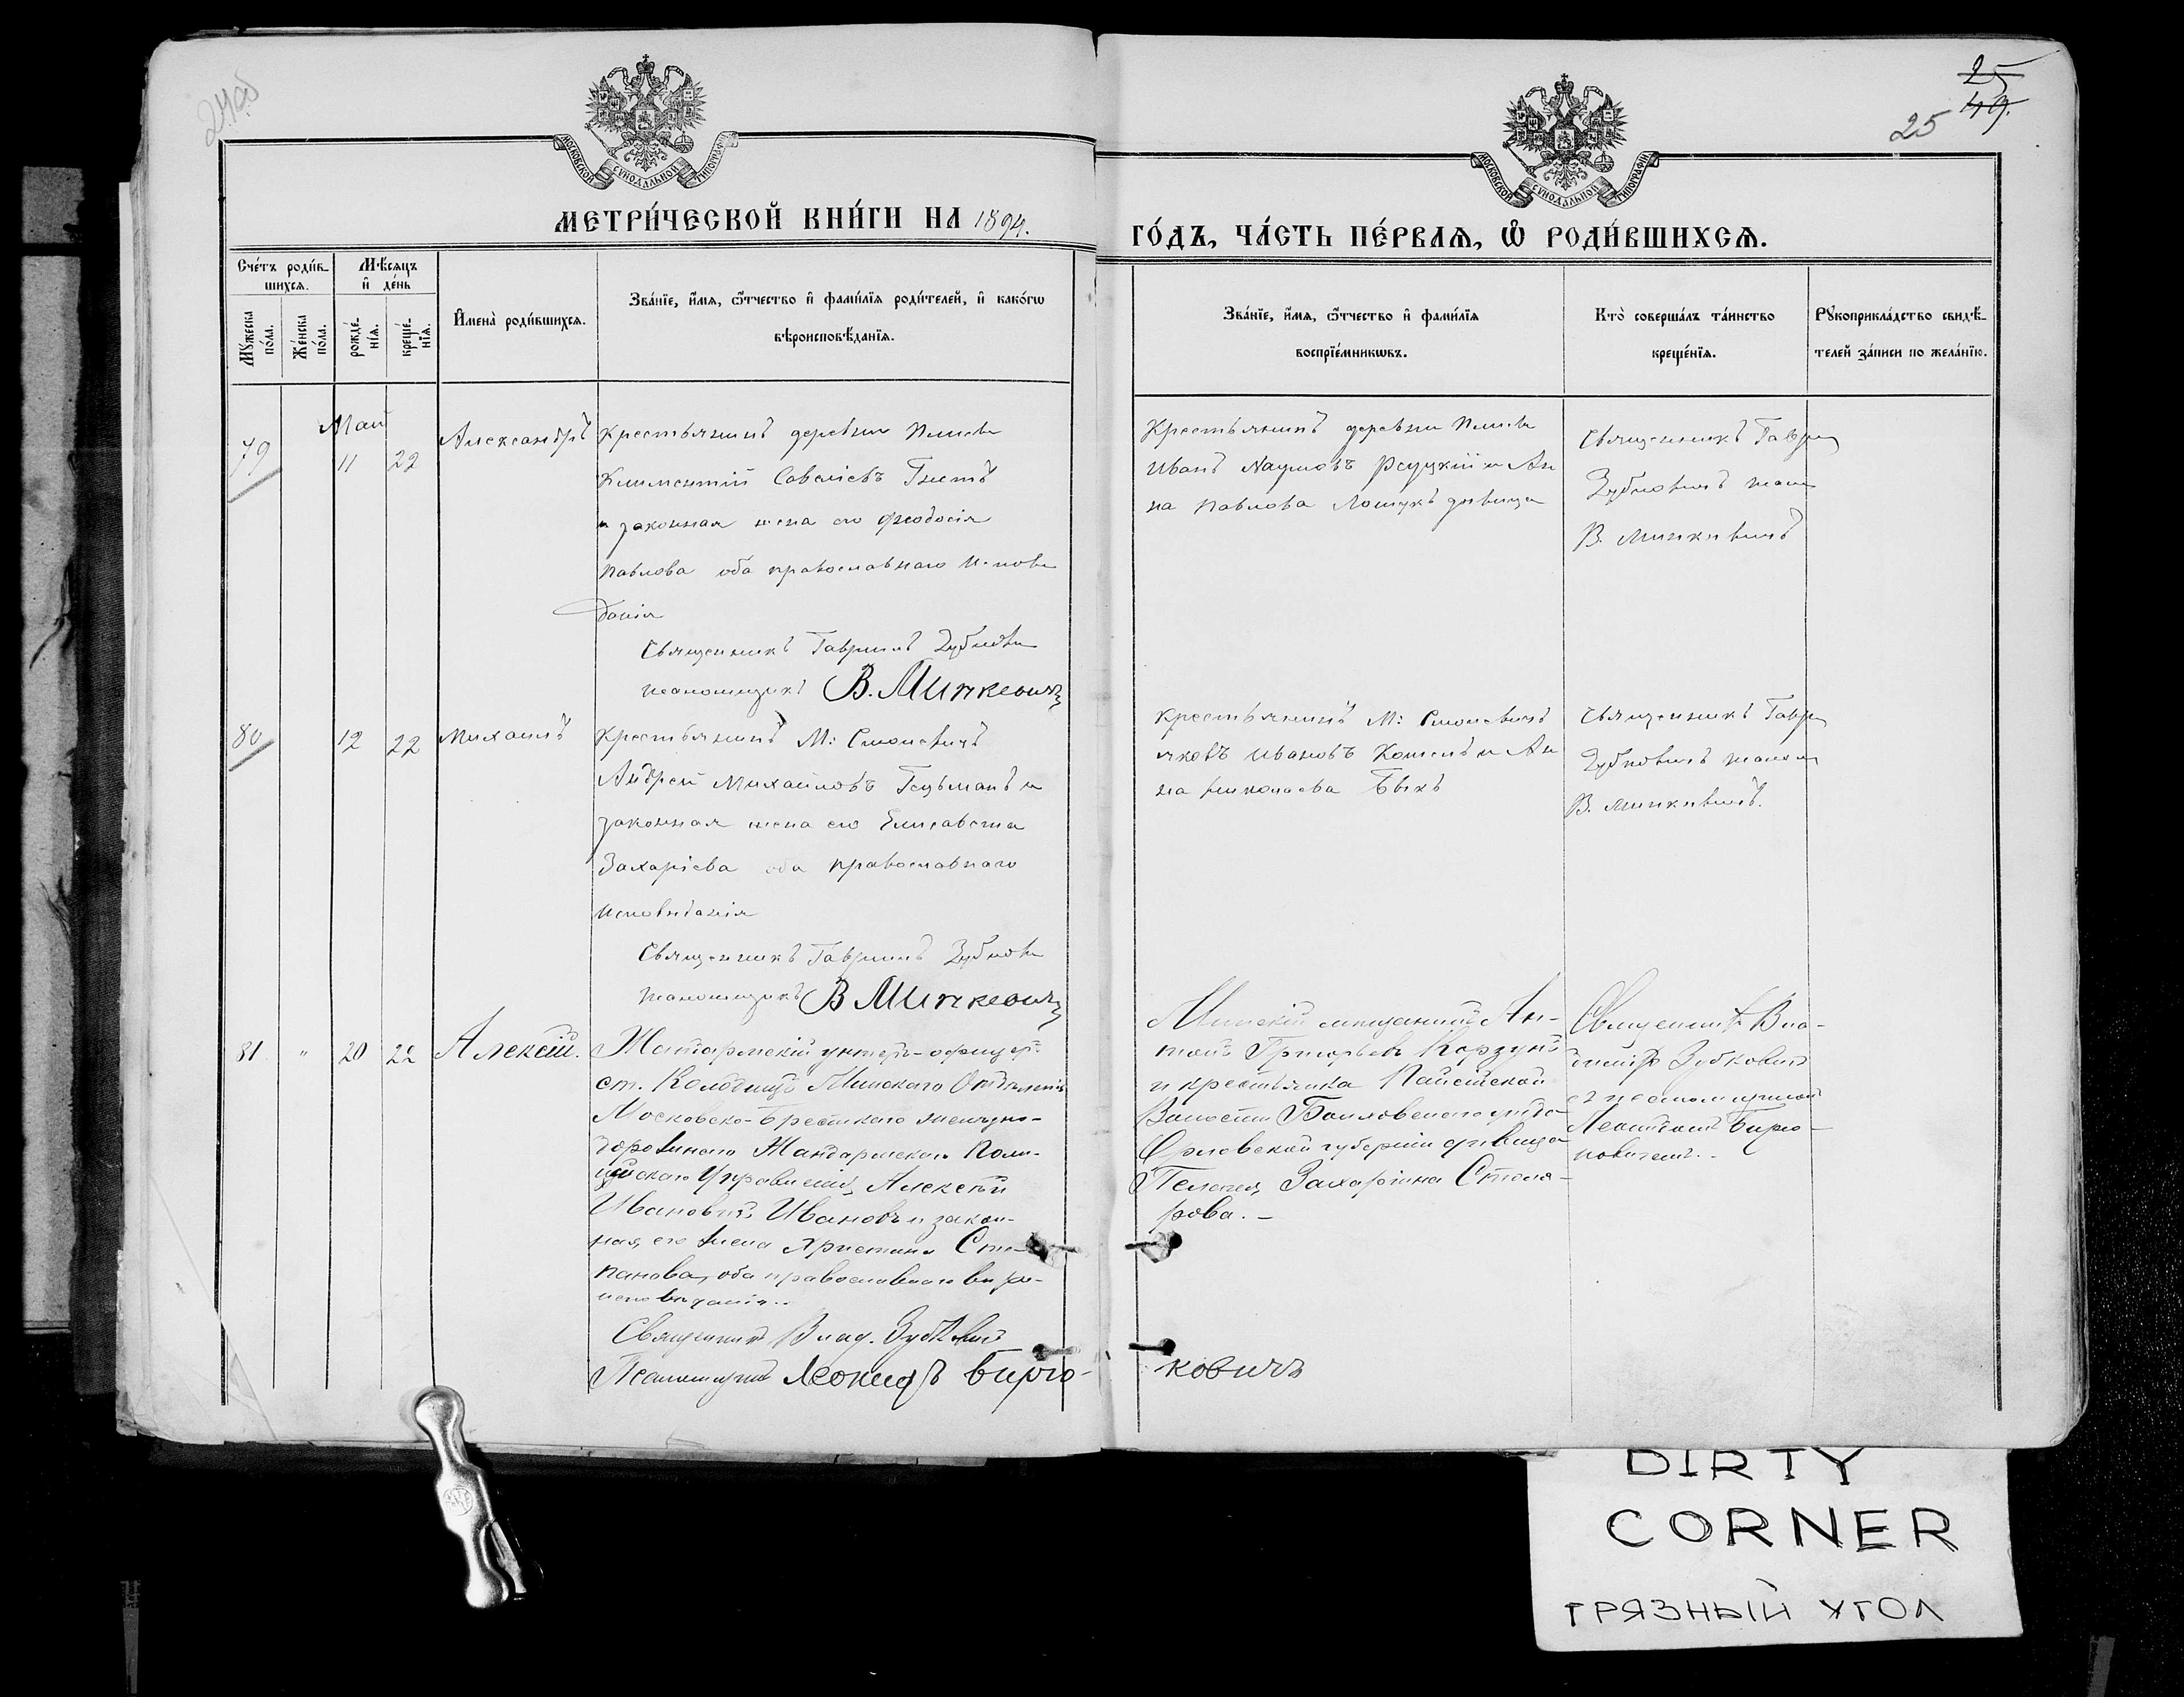 24об
25
49.
25
МОСКОВСКОЙ СѴНОДАЛЬНОЙ ТИПОГРАФІИ
МОСКОВСКОЙ СѴНОДАЛЬНОЙ ТИПОГРАФІИ
МЕТРИ́ЧЕСКОЙ КНИ́ГИ НА 1894.
ГО́ДЪ, ЧА́СТЬ ПЕ́РВАЯ, Ѽ РОДИ́ВШИХСЯ.
Сче́тъ роди́в-
шихся.
Мꙋ́жеска по́ла.
Же́нска по́ла.
Мѣ́сяцъ
и҆ де́нь
рожде́-
нїя.
креще́-
нїя.
И҆мена̀ роди́вшихся.
Зва́нїе, и҆́мя, ѻ҆́тчество и҆ фами́лїя роди́телей, и҆ како́гѡ
вѣроисповѣ́данїя.
Зва́нїе, и҆́мя, ѻ҆́тчество и҆ фами́лїя
воспрїе́мникѡвъ.
Кто̀ соверша́лъ та́инство
креще́нїя.
Рꙋкоприкла́дство свидѣ́-
телей за́писи по жела́нїю.
79
Май
11 22
Александръ
Крестьянинъ деревни
Климентій Савеліевъ Гнетъ
и законная жена его Феодосія
Павлова оба православнаго испове
данія
Священникъ Гавріилъ Зубкови
псаломщикъ В. Минкевичъ
Крестьянинъ деревни
Иванъ Наумовъ и Ан
на Павлова девица
Священникъ Гаврі
Зубковичъ псалом
В. Минкевичъ
80 12 22 Михаилъ
Крестьянинъ М: Смолевичъ
Андрей Михайловъ Гецьманъ и
законная жена его Елисавета
Захаріева оба православнаго
исповеданія
Священникъ Гавріилъ Зубкови
псаломщикъ В Минкевичъ
Крестьянинъ М: Смолевичъ
Яковъ Ивановъ и Ан
на Николаева Быкъ
Священникъ Гаврі
Зубковичъ псалом
В. Минкевичъ.
81 " 20 22 Алексій.
Жандармскій унтеръ-офицеръ
ст. Колодищи Минскаго Отдѣленія
Московско-Брестскаго желѣзно-
дорожнаго Жандармскаго Поли-
цейскаго Управленія, Алексѣй
Ивановичъ Ивановъ и закон-
ная, его жена Христина Сте-
панова, оба православнаго вѣро-
исповѣданія..
Священникъ Влад. Зубковичъ
Псаломщикъ Леонидъ Бирю-
ковичъ
Минскій мѣщанинъ Ан-
тонъ Григорьевъ Корзунъ
и крестьянка
Волости Болховскаго уѣзда
Орловской губерніи дѣвица
Пелагея Захаріина Столя-
рова. –
Священникъ Вла-
диміръ Зубковичъ
съ псаломщикомъ
Леонидомъ Бирю-
ковичемъ. –
DIRTY
CORNER
ГРЯЗНЫЙ УГОЛ